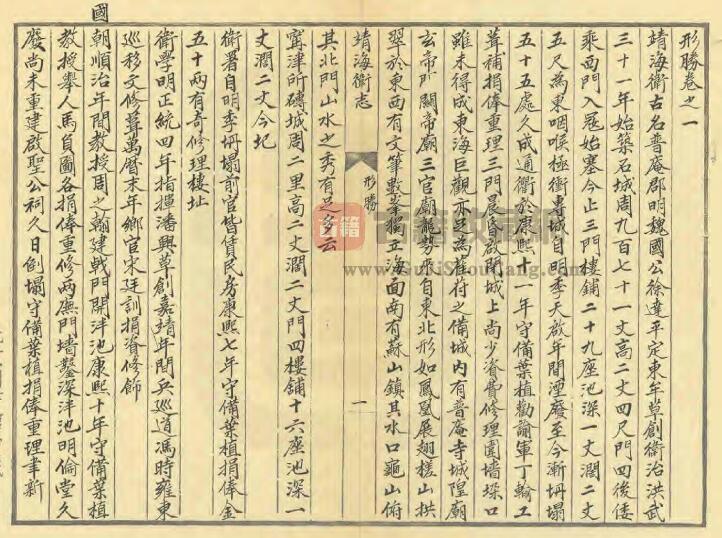 形勝卷之一
靖海衛古名普庵郡明魏國公徐達平定東牟草創衛治洪武
三十一年始築石城周九百七十一丈高二丈四尺門四後倭
乘西門入冦始塞今止三門樓鋪二十九座池深一丈濶二丈
五尺為東咽喉極衝專城自明季天啟年間湮廢至今漸坍塌
五十五處久成通衢於康熙十一年守備葉植勸諭軍丁輸工
葺補捐俸重理三門晨昏啟閉城上尚少資費修理圍墻垜口
雖未得成東海巨觀亦足為萑苻之備城内有普庵寺城隍廟
玄帝廟關帝廟三官廟龍勢飛自東北形如鳳凰展翅槎山拱
翠於東西有文筆數峯獨立海面南有蘇山鎮其水口龜山俯
靖海衛志
形勝
一
其北門山水之秀有足多云
甯津所磚城周二里高二丈濶二丈門四樓舖十六座池深一
丈濶二丈今圮
衛署自明季坍塌前官皆賃民房康熙七年守備葉植捐俸金
五十兩有奇修理樓址
衛學明正統四年指揮潘興草創嘉靖年間兵巡道馮時雍東
巡移文修葺萬曆末年鄉官宋廷訓捐資修飾
國朝順治年間教授周之翰建戟門開泮池康熙十年守備葉植
教授舉人馬負圖各捐俸重修兩廡門墻鑿深泮池明倫堂久
廢尚未重建啟聖公祠久日倒塌守備葉植捐俸重理聿新
古籍
www.GuJiShouCang.com